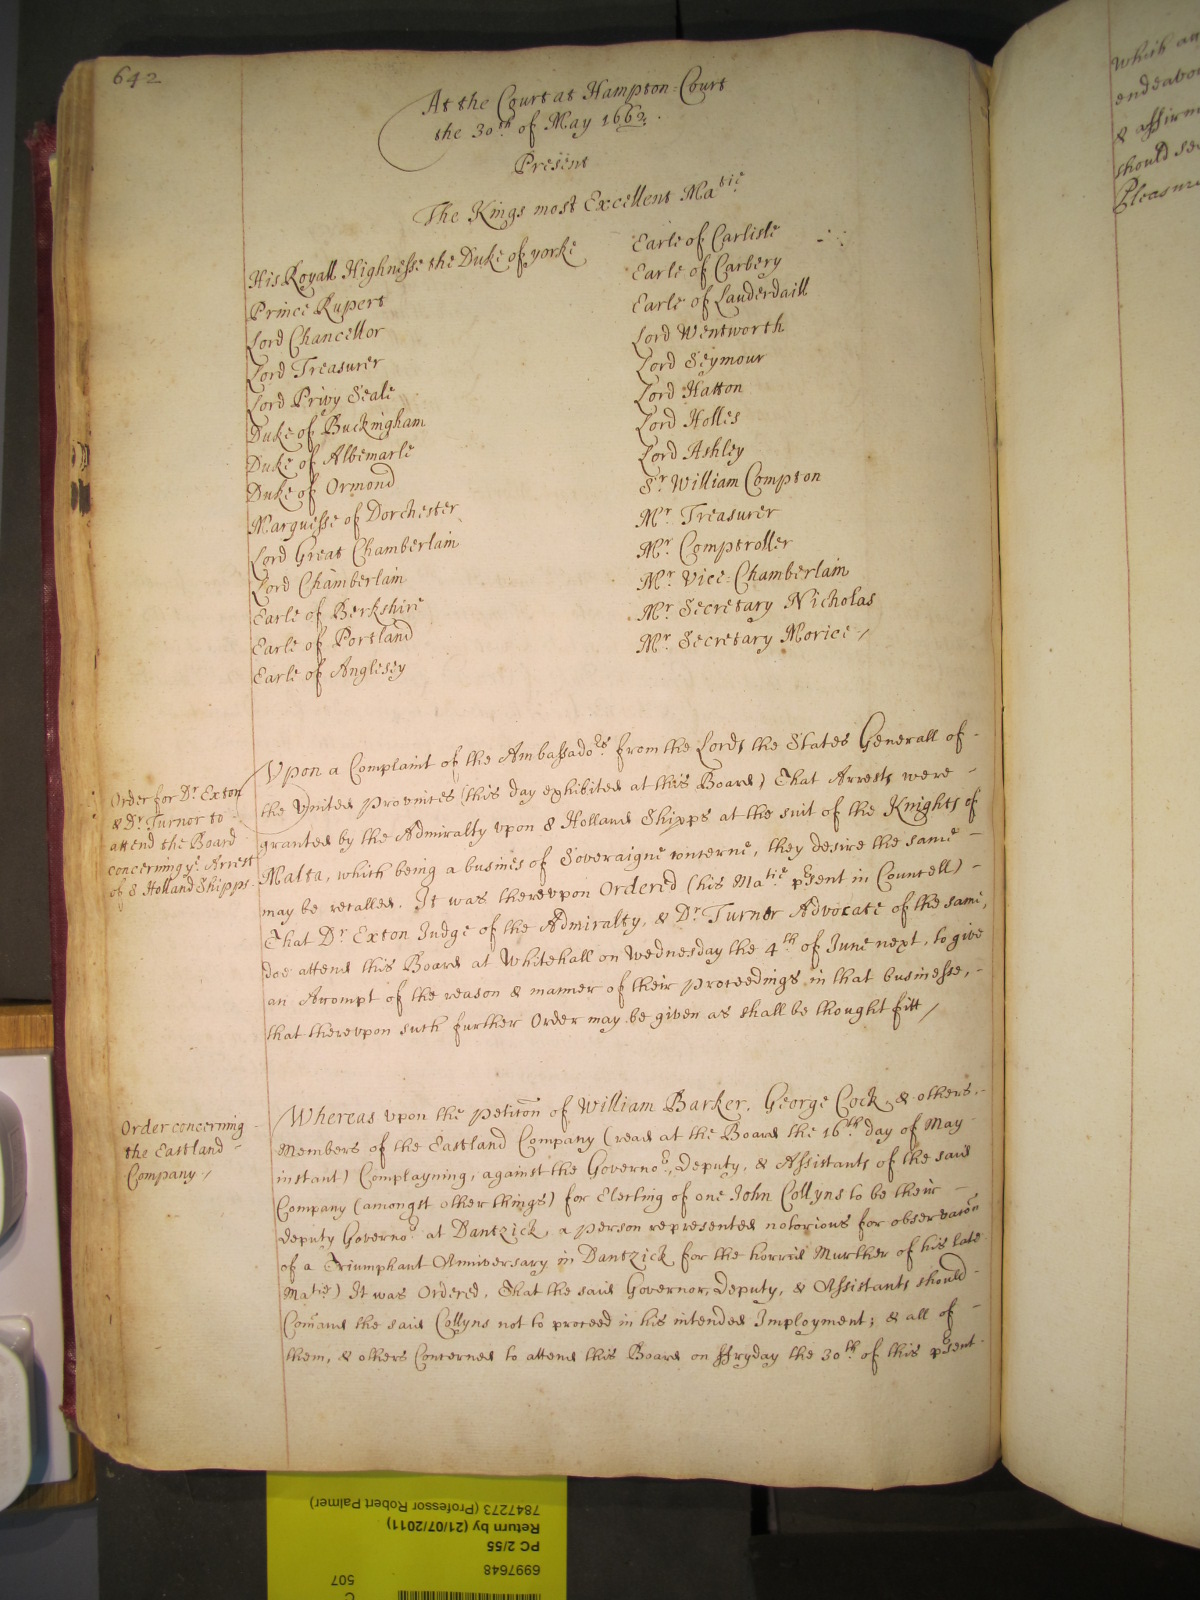 642
At the Court at Hampton-Court
the 30th of May 1662.
Present
The Kings most Excellent Matie
His Royall Highnesse the Duke of yorke
Prince Rupert
Lord Chancellor
Lord Treasurer
Lord Privy Seale
Duke of Buckingham
Duke of Albemarle
Duke of Ormond
Marquesse of Dorchester
Lord Great Chamberlain
Lord Chamberlain
Earle of Berkshire
Earle of Portland
Earle of Anglesey
Earle of Carlisle
Earle of Carbery
Earle of Lauderdaill
Lord Wentworth
Lord Seymour
Lord Hatton
Lord Holles
Lord Ashley
Sr William Compton
Mr. Treasurer
Mr. Comptroller
Mr. Vice-Chamberlain
Mr. Secretary Nicholas
Mr. Secretary Morice /
Order for Dr. Exton
& Dr. Turner to
attend the Board
concerning ye Arrest
of 8 Holland Shipps
Upon a Complaint of the Ambassadors from the Lords the States Generall of -
the United Provinces (this day exhibited at this Board) That Arrests were -
granted by the Admiralty upon 8 Holland Shipps at the suit of the Knights of
Malta, which being a busines of Soveraigne concerne, they desire the same -
may be recalled. It was thereupon Ordered (his Matie psent in Councell) -
That Dr. Exton Judge of the Admiralty, & Dr. Turner Advocate of the same,
doe attend this Board at Whitehall on Wednesday the 4th of June next, to give
an Accompt of the reason & manner of their proceedings in that businesse, -
that thereupon such further Order may be given as shall be thought fitt /
Order concerning
the Eastland -
Company /
Whereas upon the petiton of William Barker, George Cock, & others, -
Members of the Eastland Company (read at the Board the 16th day of May
instant) Complayning, against the Governor, Deputy, & Assistants of the said
Company (amongst other things) for Electing of one John Collyns to be their -
deputy Governor at Dantzick, a person represented notorious for observaton
of a Triumphant Anniversary in Dantzick for the horrid Murther of his late
Matie) It was Ordered, That the said Governor, Deputy, & Assistants should
Comand the said Collyns not to proceed in his intended Imployment; & all of -
them, & others Concerned to attend this Board on ffryday the 30th of this psent -
which an
endeavo
& affirm
should se
Pleasure
C
507
6997648
PC 2/55
Return by (21/07/2011)
7847273 (Professor Robert Palmer)